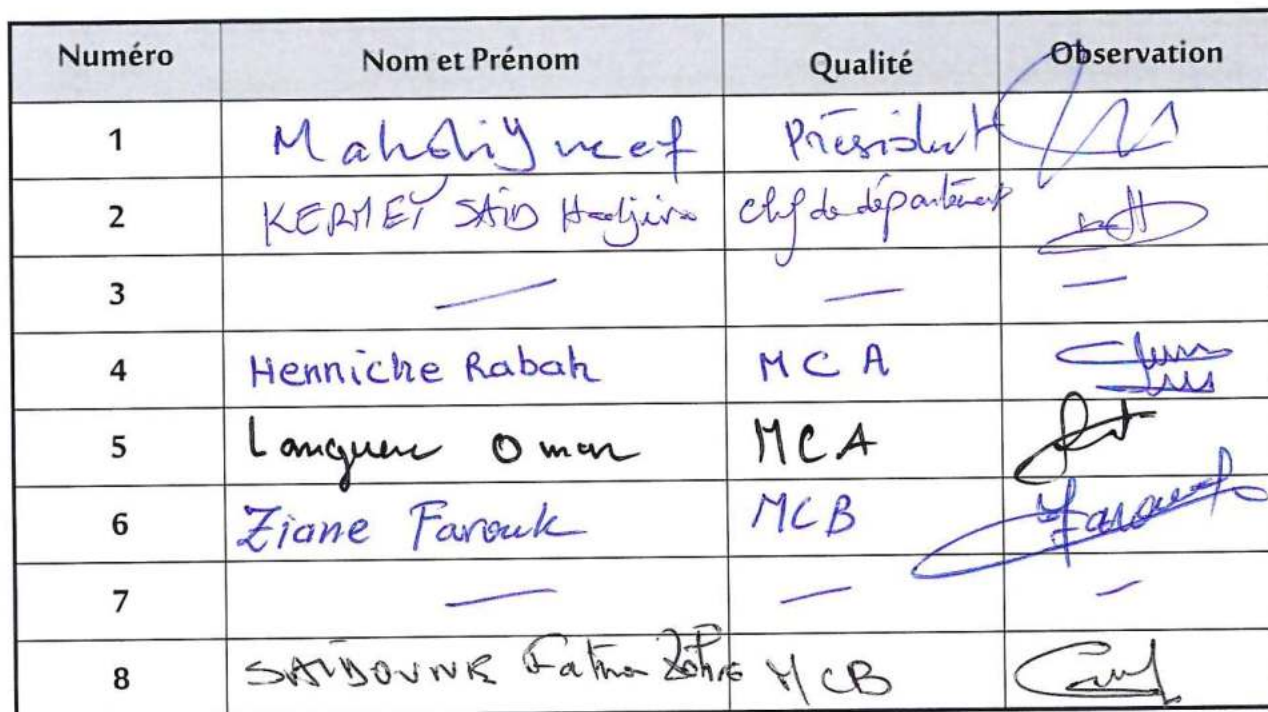 Numéro Nom et Prénom Qualité Observation
1 Mahdi Youcef Président
2 KERMET SAID Hadjira chef de département
3 — — —
4 Henniche Rabah MCA
5 Omar MCA
6 Ziane Farouk MCB Farouk
7 — — —
8 SAIDOUNE Fatma Zohra MCB